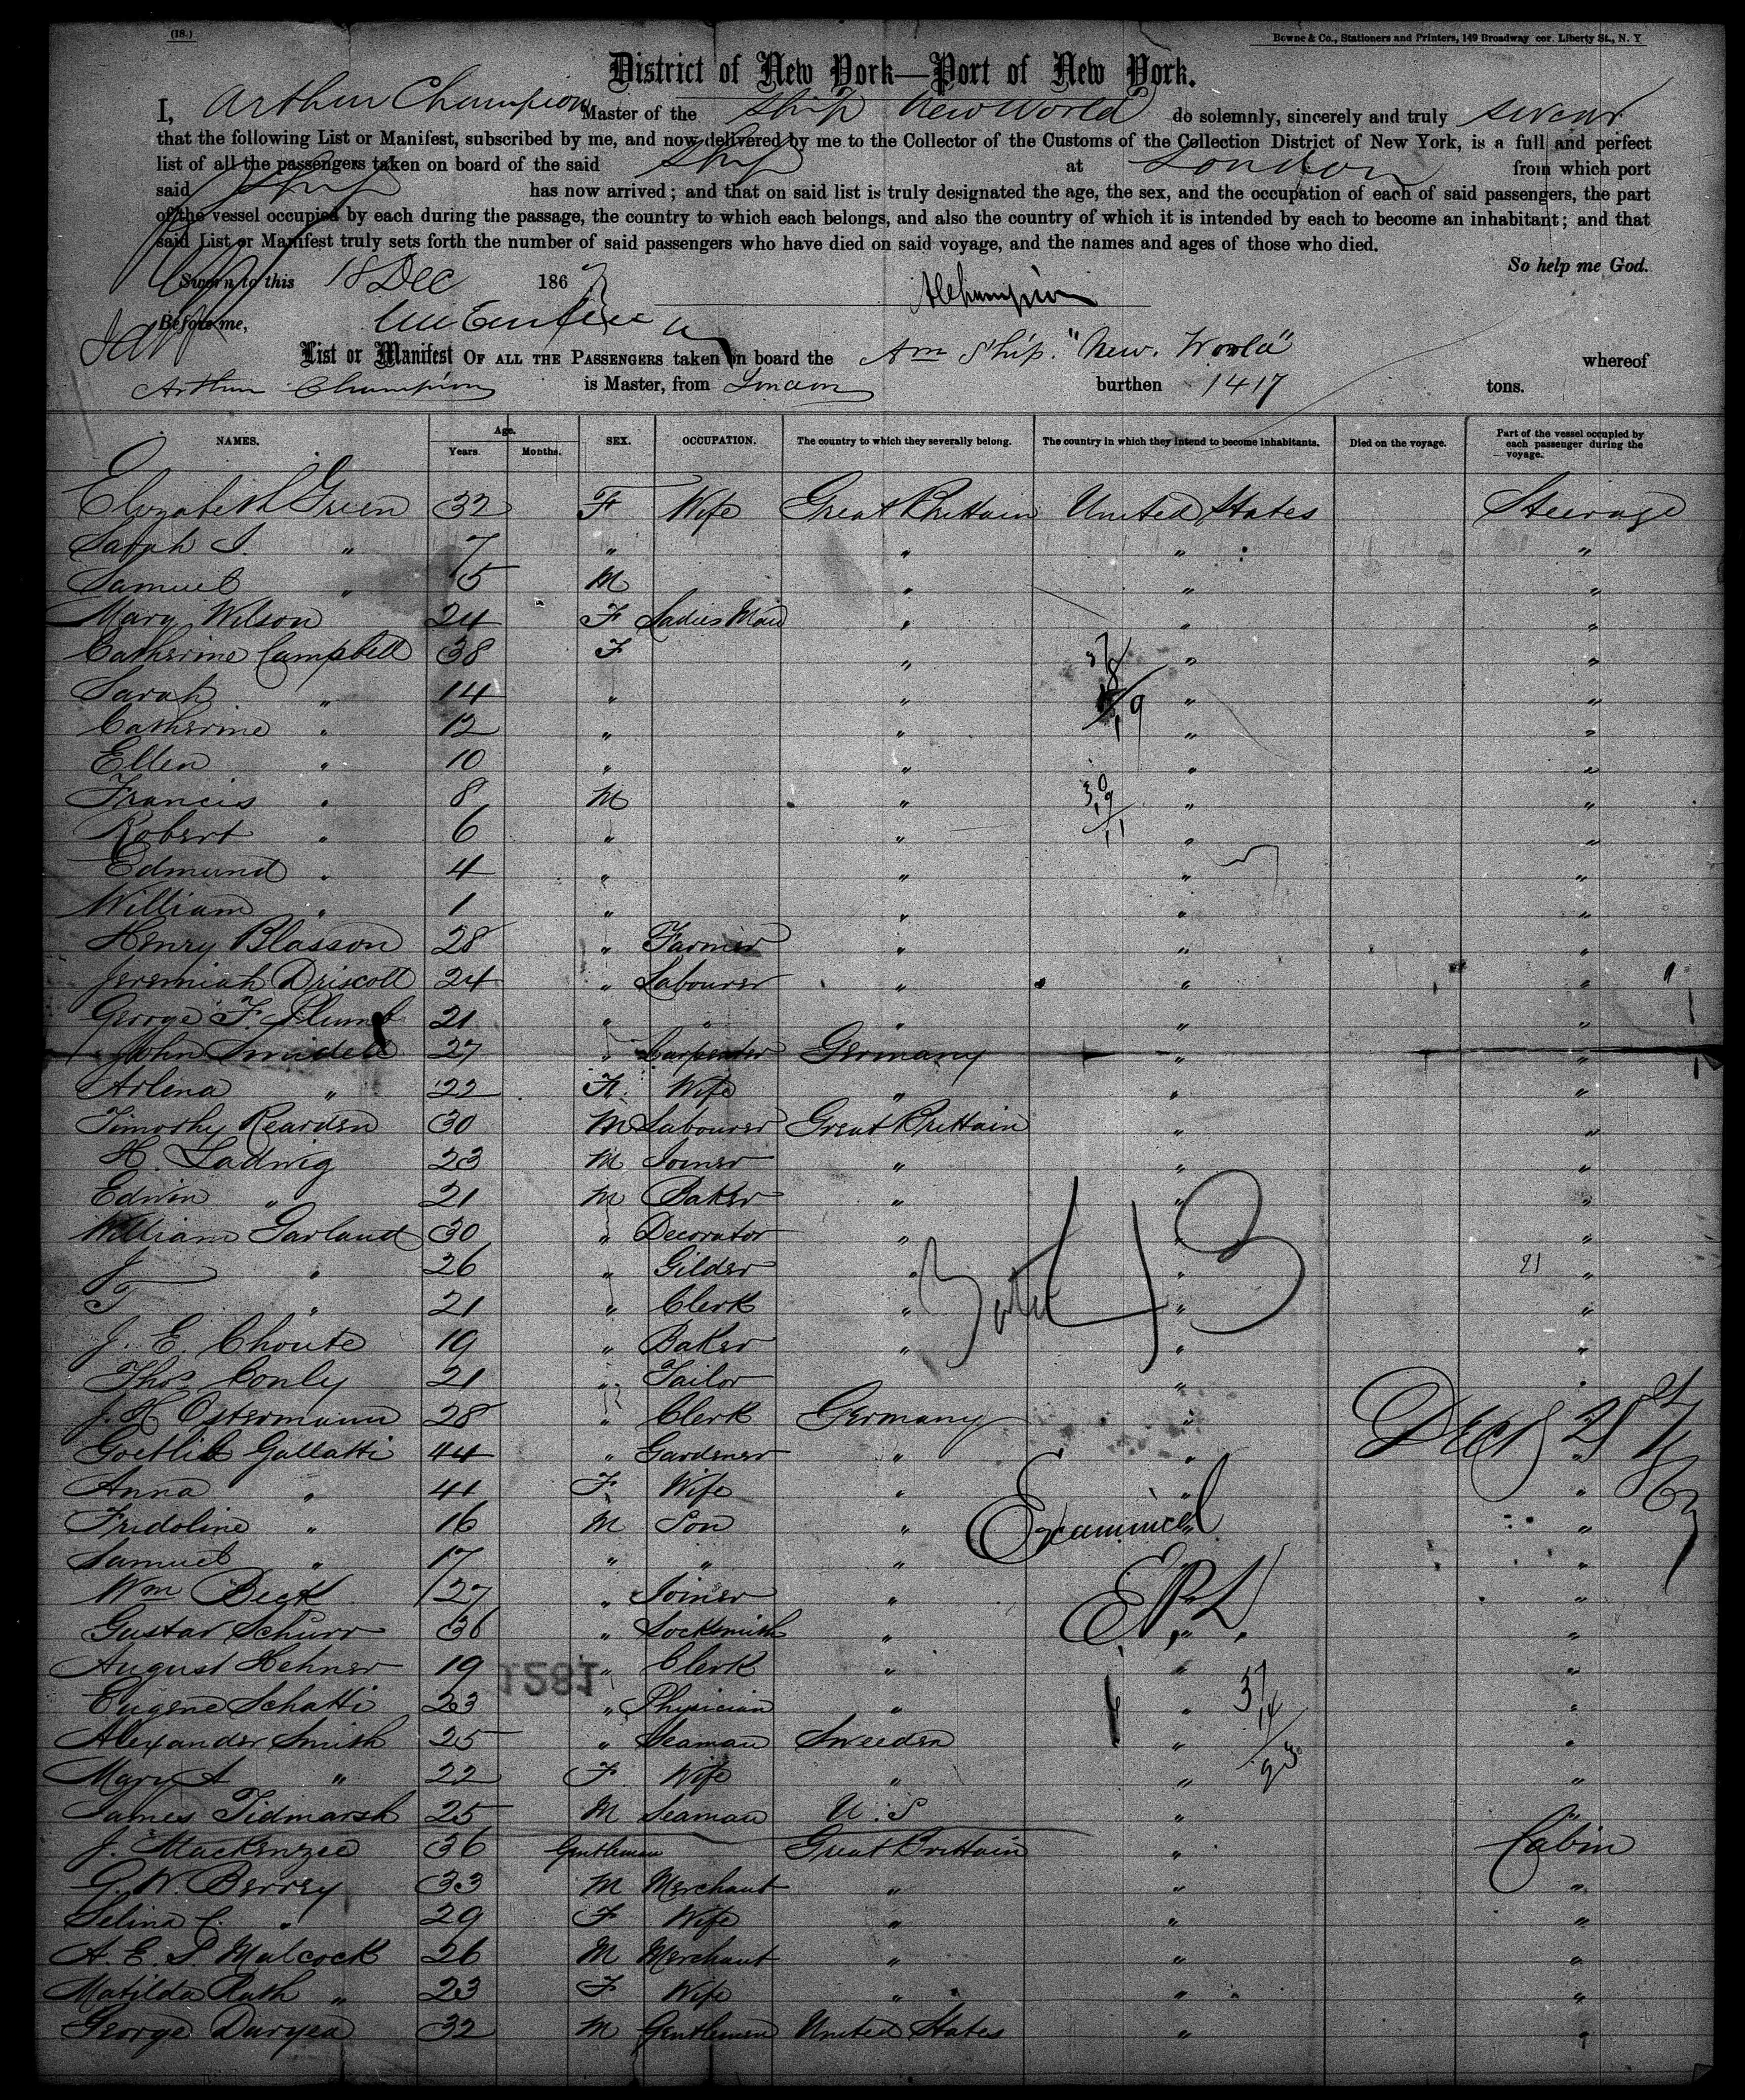 (18.)
Bowne & Co., Stationers and Printers, 149 Broadway cor. Liberty St., N. Y
District of New York—Port of New York.
I, Arthur Champion Master of the Ship New World do solemnly, sincerely and truly swear
that the following List or Manifest, subscribed by me, and now delivered by me to the Collector of the Customs of the Collection District of New York, is a full and perfect
list of all the passengers taken on board of the said Ship at London from which port
said Ship has now arrived; and that on said list is truly designated the age, the sex, and the occupation of each of said passengers, the part
of the vessel occupied by each during the passage, the country to which each belongs, and also the country of which it is intended by each to become an inhabitant; and that
said List or Manifest truly sets forth the number of said passengers who have died on said voyage, and the names and ages of those who died.
So help me God.
Sworn to this 18 Dec 1867
AChampion
Before me,
List or Manifest OF ALL THE PASSENGERS taken on board the Am Ship "New World" whereof
Arthur Champion is Master, from London burthen 1417 tons.
NAMES. Age. Years. Months. SEX. OCCUPATION. The country to which they severally belong. The country in which they intend to become inhabitants. Died on the voyage. Part of the vessel occupied by each passenger during the voyage.
Elizabeth Green 32 F Wife Great Brittain United States Steerage
Sarah J. " 7 " " " "
Samuel " 5 M " " "
Mary Wilson 24 F Ladies Maid " " "
Catherine Campbell 38 F " " "
Sarah " 14 " " " "
Catherine " 12 " " " "
Ellen " 10 " " " "
Francis " 8 M " " "
Robert " 6 " " " "
Edmund " 4 " " " "
William " 1 " " " "
Henry Blasson 28 " Farmer " " "
Jeremiah Driscoll 24 " Labourer " " "
George F. Plumb 21 " " " " "
John Smidell 27 " Carpenter Germany " "
Arlena " 22 F. Wife " " "
Timothy Rearden 30 M Labourer Great Brittain " "
H. Ladwig 23 M Joiner " " "
Edwin " 21 M Baker " " "
William Garland 30 " Decorator " " "
J " 26 " Gilder " " 21 "
T " 21 " Clerk " " "
J. E. Choute 19 " Baker " " "
Thos Conly 21 " Tailor " "
J. H Ostermann 28 " Clerk Germany "
Goetlieb Gallatti 44 " Gardener " " "
Anna " 41 F Wife " " "
Fridoline " 16 M Son " " "
Examined
Samuel " 17 " " " "
Wm Beck 27 " Joiner " " "
Gustav Schurr 36 " Locksmith " " "
August Hehner 19 " Clerk " " "
1281
Eugene Schatti 23 " Physician " " "
Alexander Smith 25 " Seaman Sweeden " "
Mary A " 22 F Wife " " "
James Tidmarsh 25 M Seaman U. S " "
J. Mackenzee 36 Gentleman Great Brittain " Cabin
G. W. Berrey 33 M Merchant " " "
Selina C. " 29 F Wife " " "
A. E. P. Malcock 26 M Merchant " " "
Matilda Ruth " 23 F Wife " " "
George Duryea 32 M Gentleman United States " "